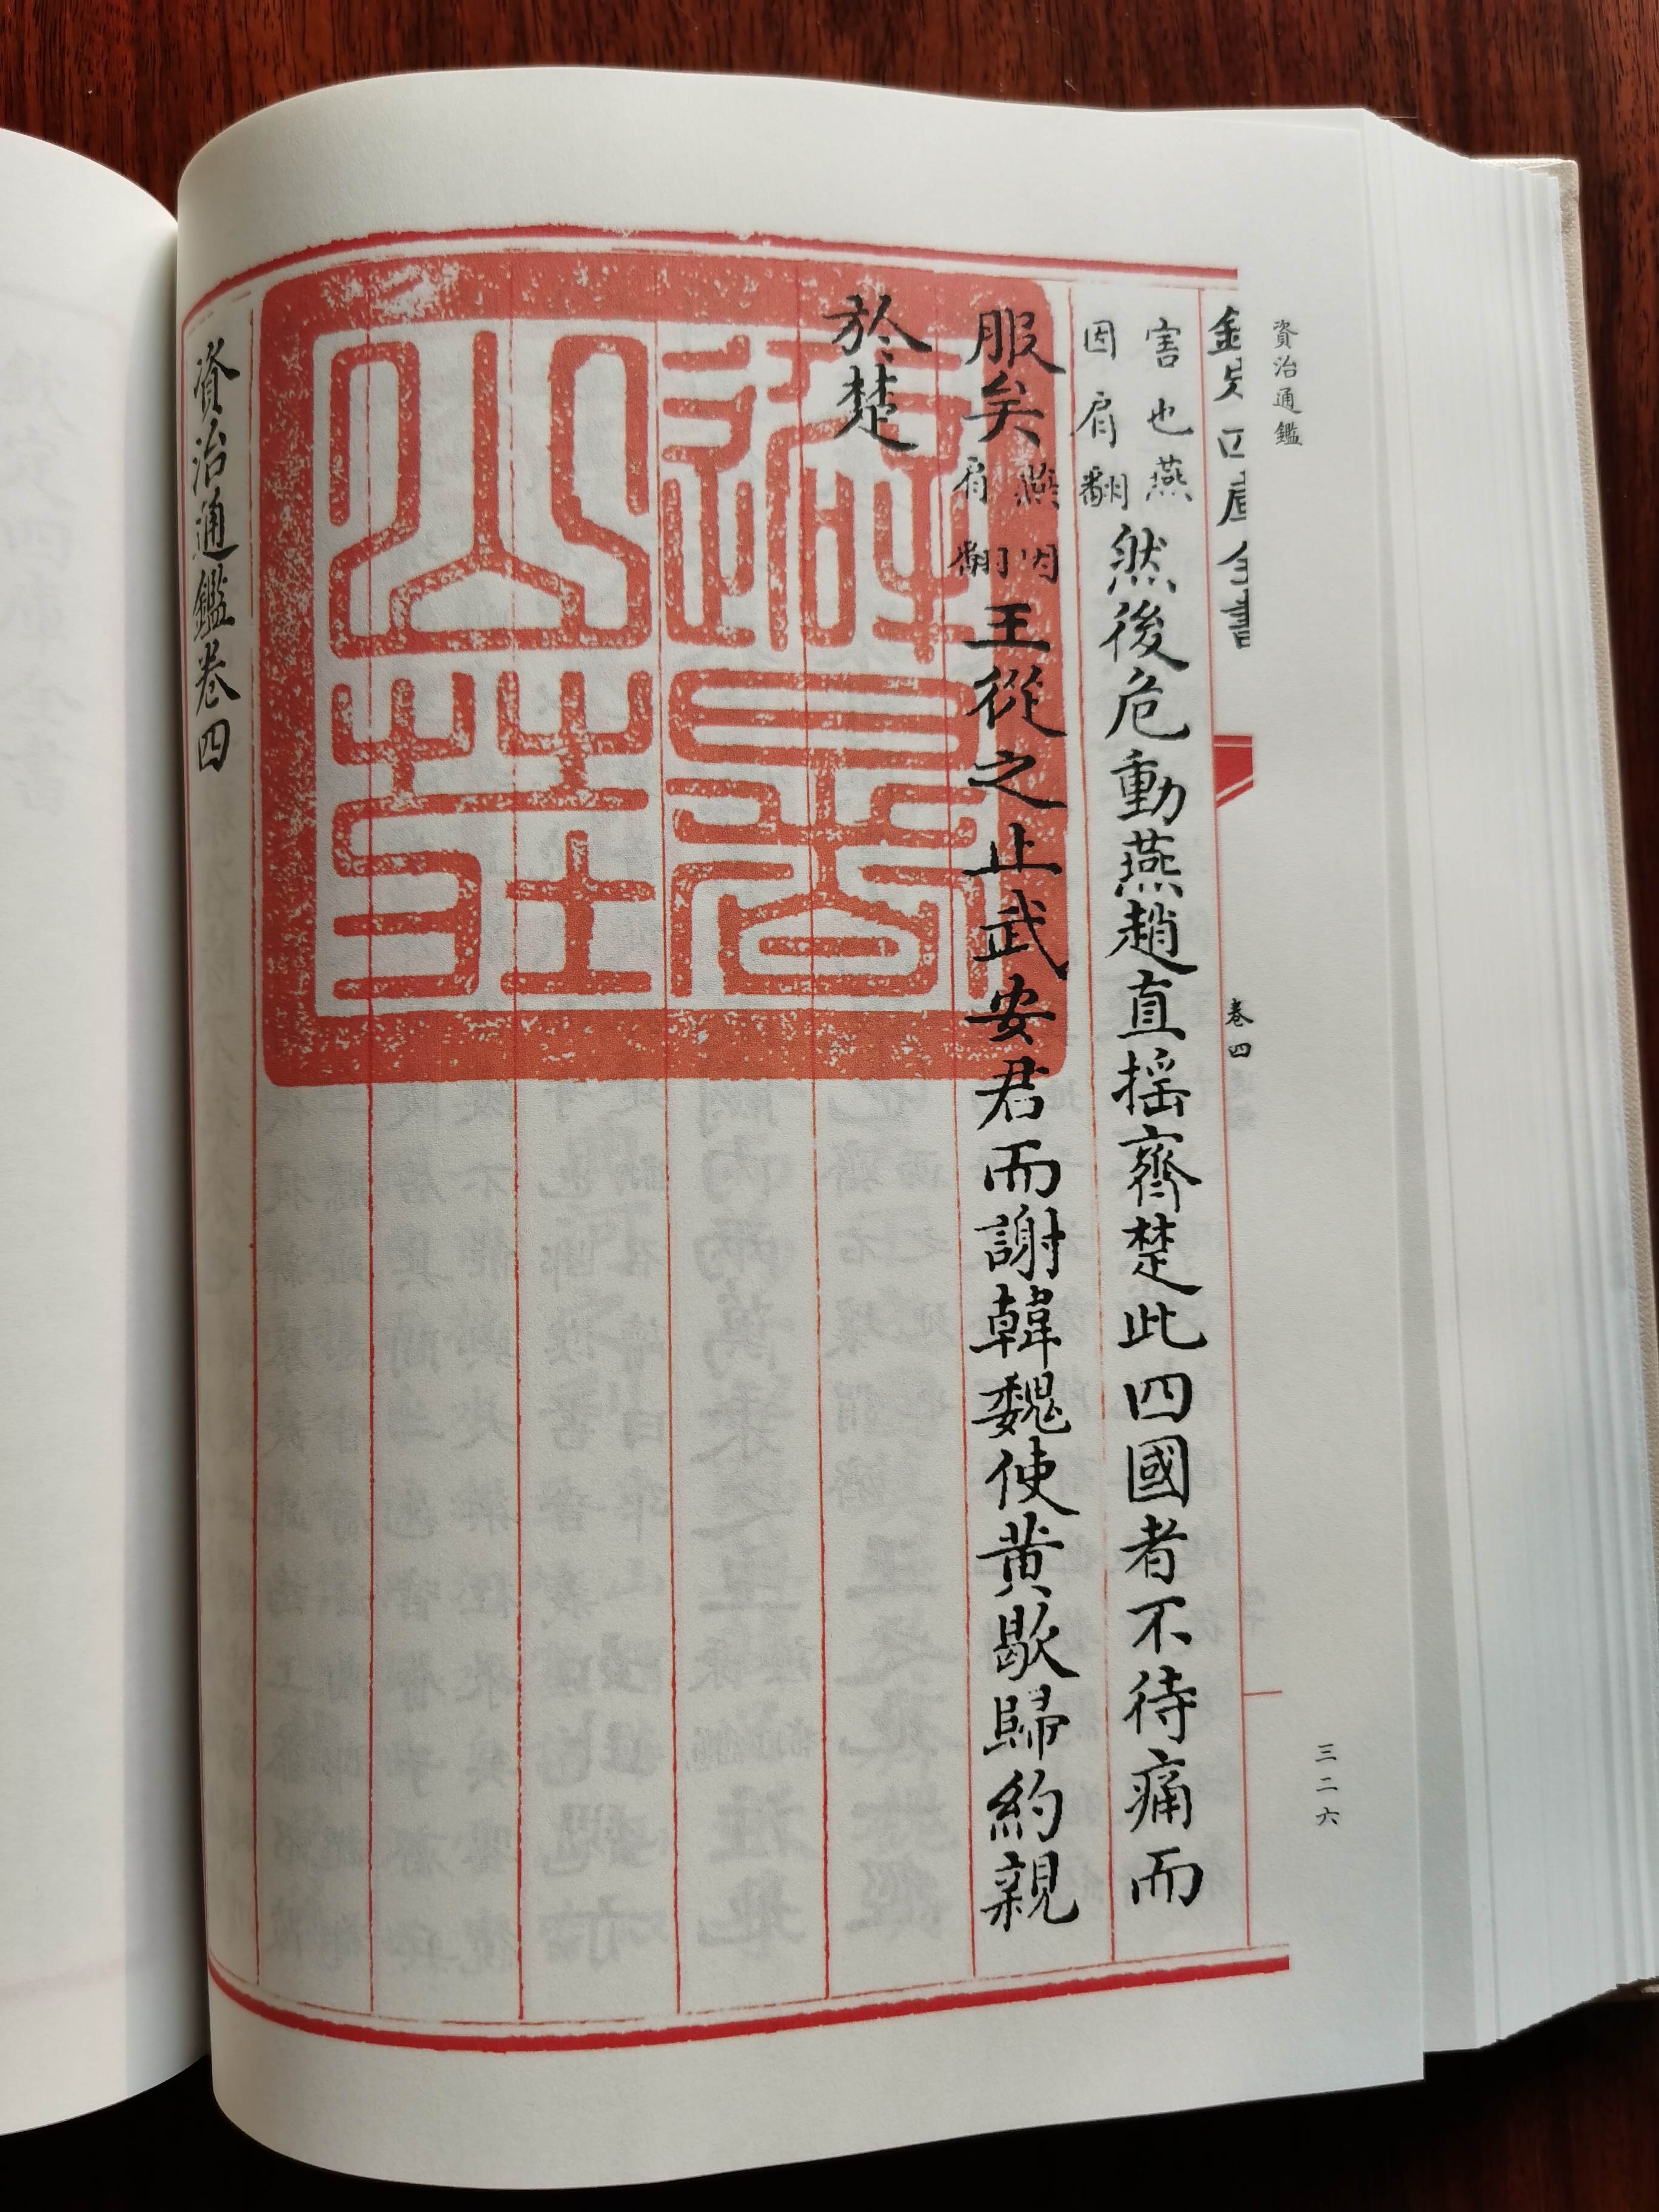 資治通鑑
三二六
欽定四庫全書
卷四
害也燕
因肩翻
然後危動燕趙直揺齊楚此四國者不待痛而
服矣燕因肩翻王從之止武安君而謝韓魏使黄歇歸約親
於楚
避暑山莊
資治通鑑卷四